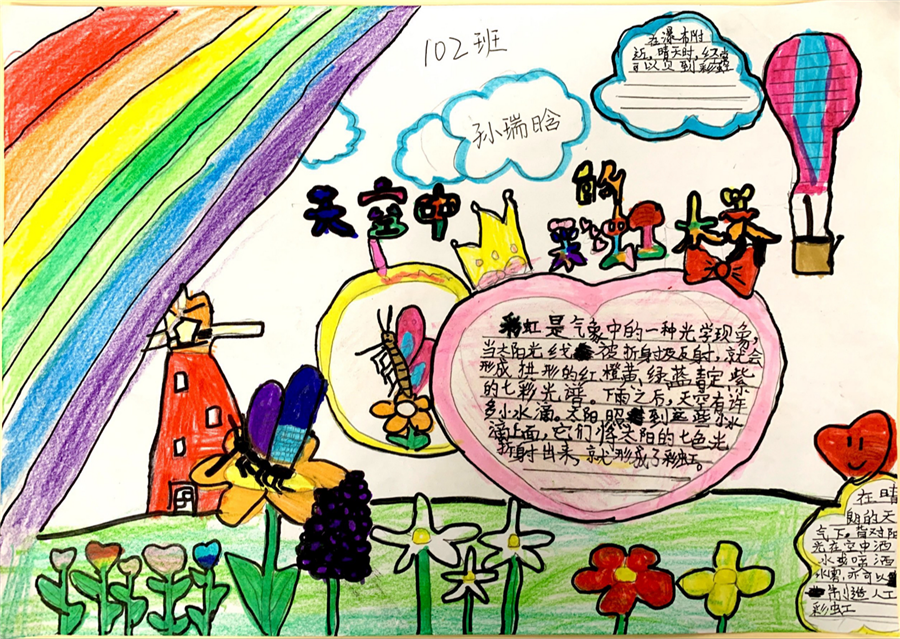 102班
孙瑞晗
在瀑布附
近,晴天时,经常
可以见到彩虹
天空中
的
彩虹大桥
彩虹是气象中的一种光学现象,
当太阳光线被折射及反射,就会
形成拱形的红橙黄绿蓝靛紫
的七彩光谱。下雨之后,天空有许
多小水滴。太阳照到这些小水
滴上面,它们将太阳的七色光
折射出来,就形成了彩虹。
在晴
朗的天
气下。背对阳
光在空中洒
水或喷洒
水雾,亦可以
制造人工
彩虹